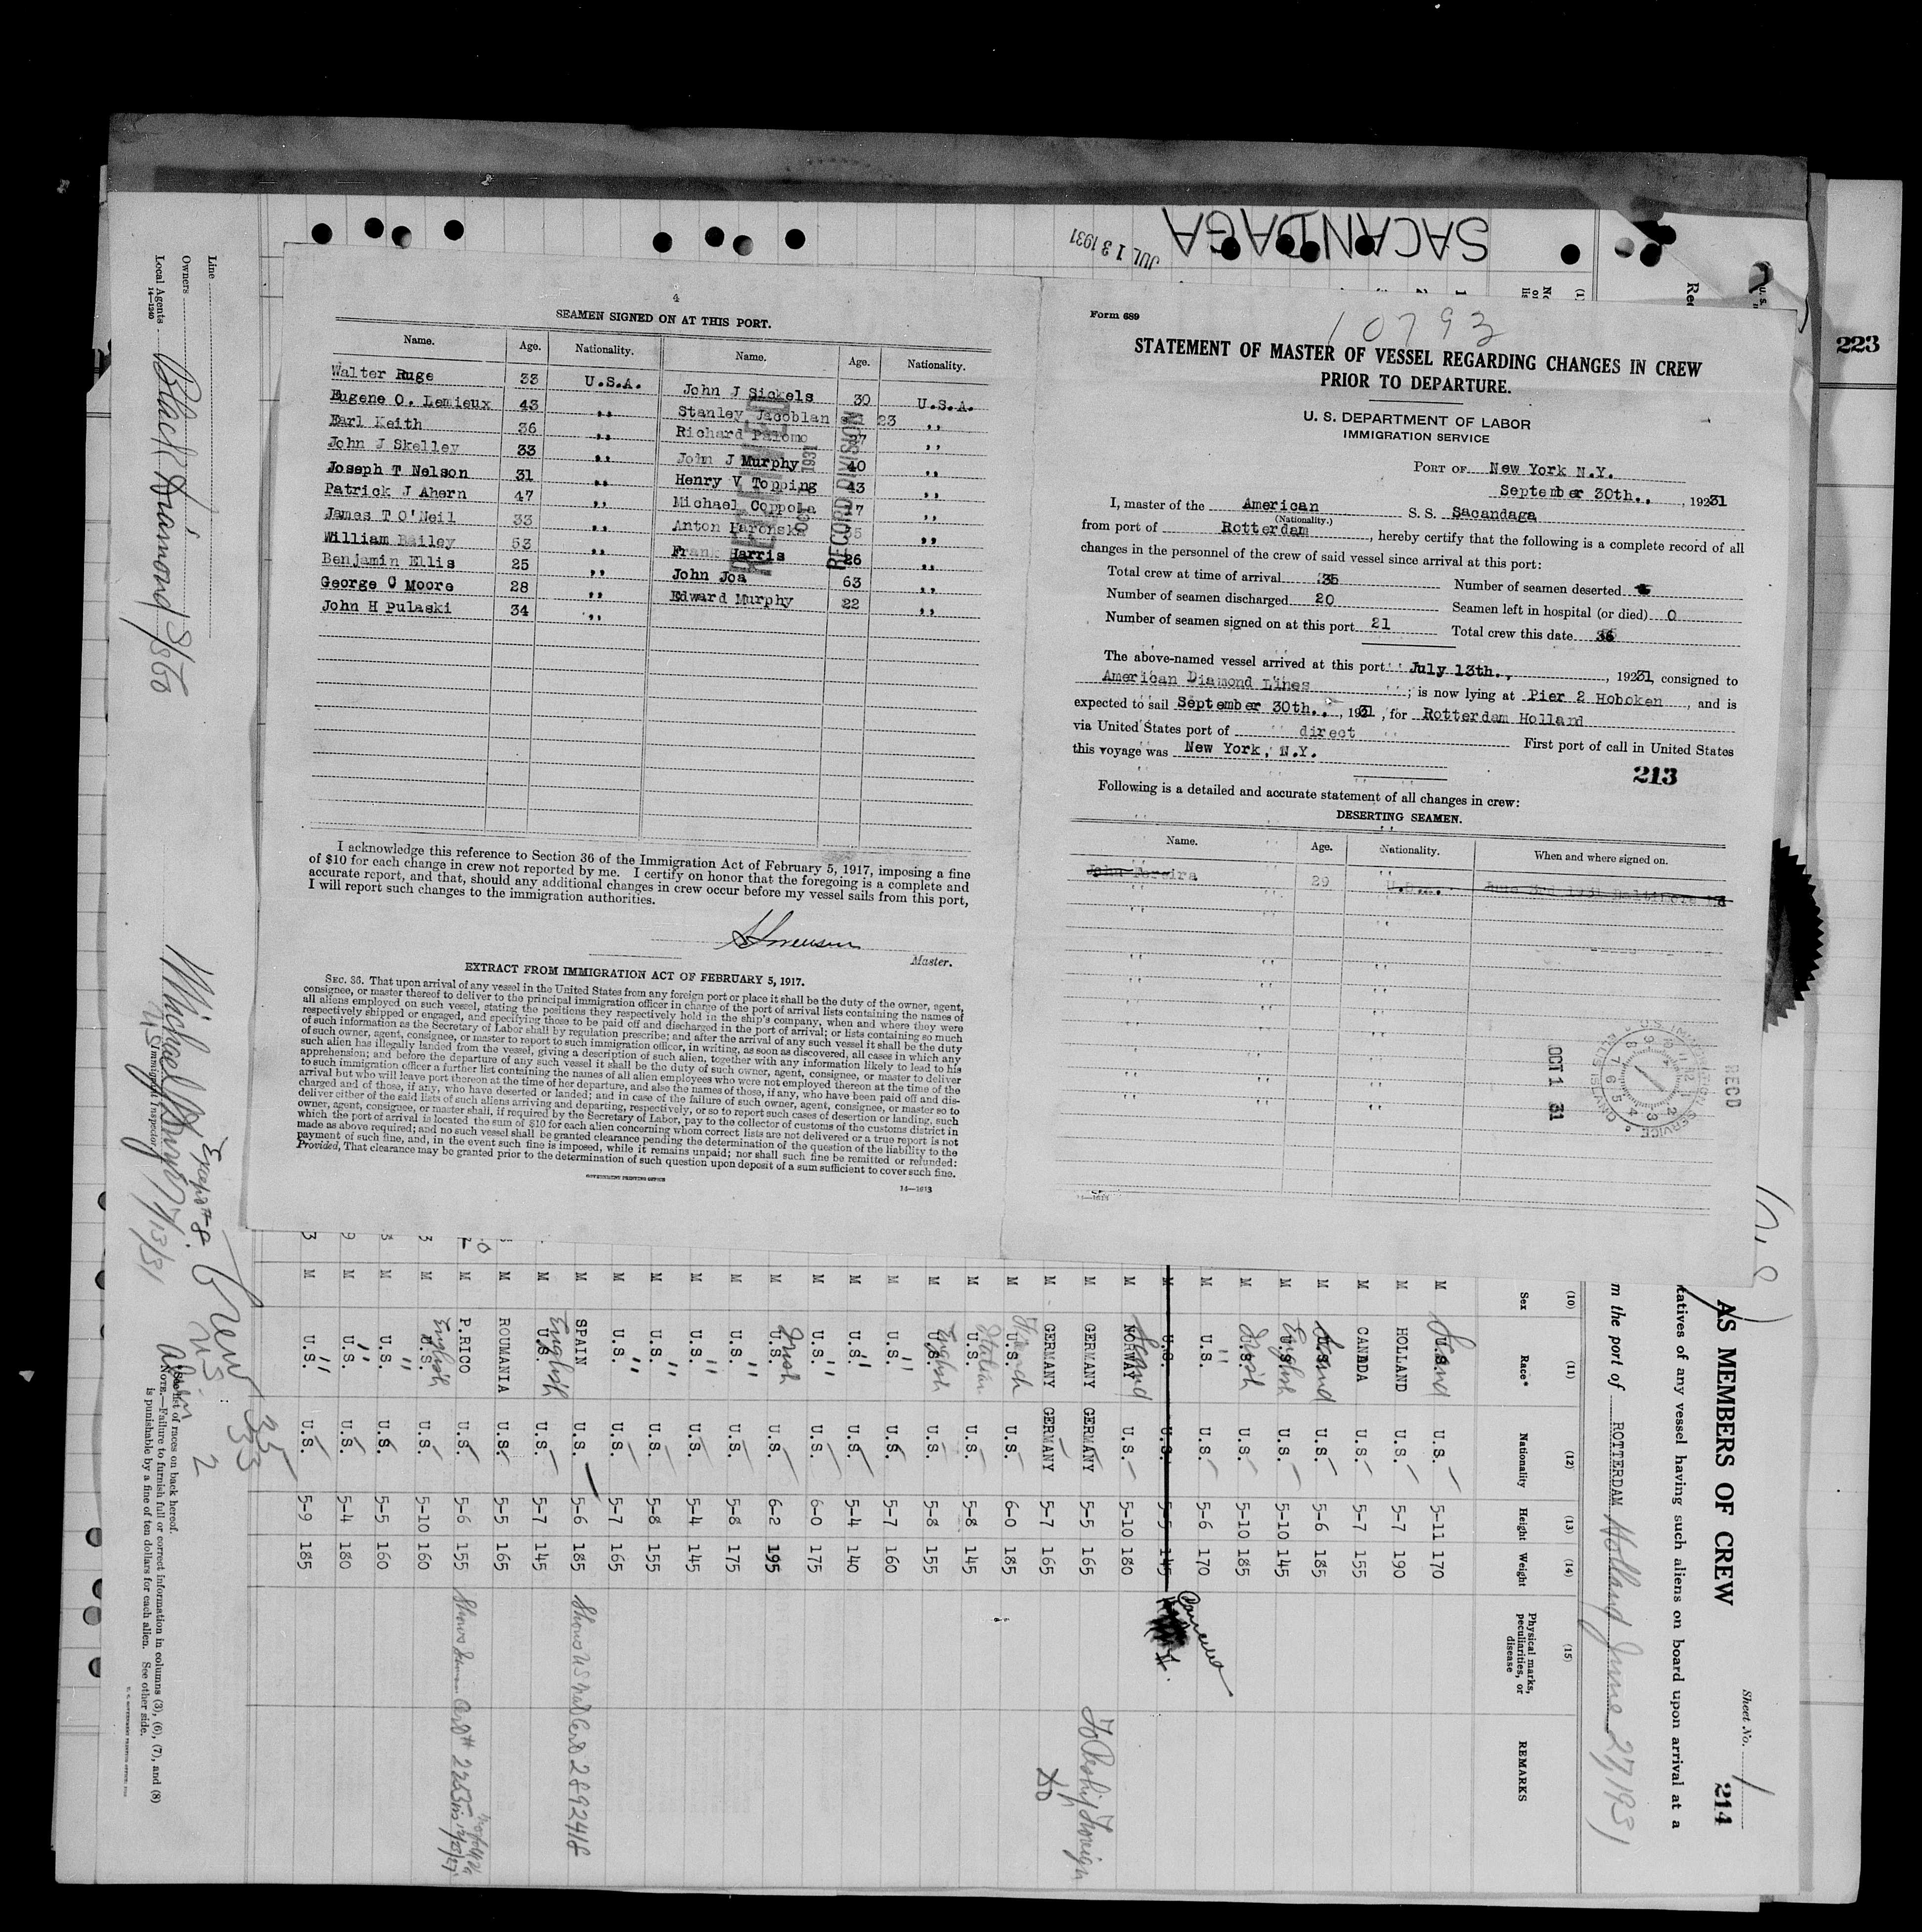 SACANDAGA
JUL 13 1931
223
4
SEAMEN SIGNED ON AT THIS PORT.
Name. Age. Nationality. Name. Age. Nationality.
Walter Ruge 33 U.S.A. John J Sickels 30 U.S.A.
Eugene O. Lemieux 43 ,, Stanley Jacoblan 23 ,,
Earl Keith 36 ,, Richard Palomo 37 ,,
John J Skelley 33 ,, John J Murphy 40 ,,
Joseph T Nelson 31 ,, Henry V Topping 43 ,,
Patrick J Ahern 47 ,, Michael Coppola ,,
James T O'Neil 33 ,, Anton ,,
William Bailey 53 ,, Frank Harris 26 ,,
Benjamin Ellis 25 ,, John Joa 63 ,,
George C Moore 28 ,, Edward Murphy 22 ,,
John H Pulaski 34 ,,
RECORD DIVISION
1931
I acknowledge this reference to Section 36 of the Immigration Act of February 5, 1917, imposing a fine
of $10 for each change in crew not reported by me. I certify on honor that the foregoing is a complete and
accurate report, and that, should any additional changes in crew occur before my vessel sails from this port,
I will report such changes to the immigration authorities.
Master.
EXTRACT FROM IMMIGRATION ACT OF FEBRUARY 5, 1917.
SEC. 36. That upon arrival of any vessel in the United States from any foreign port or place it shall be the duty of the owner, agent,
consignee, or master thereof to deliver to the principal immigration officer in charge of the port of arrival lists containing the names of
all aliens employed on such vessel, stating the positions they respectively hold in the ship's company, when and where they were
respectively shipped or engaged, and specifying those to be paid off and discharged in the port of arrival; or lists containing so much
of such information as the Secretary of Labor shall by regulation prescribe; and after the arrival of any such vessel it shall be the duty
of such owner, agent, consignee, or master to report to such immigration officer, in writing, as soon as discovered, all cases in which any
such alien has illegally landed from the vessel, giving a description of such alien, together with any information likely to lead to his
apprehension; and before the departure of any such vessel it shall be the duty of such owner, agent, consignee, or master to deliver
to such immigration officer a further list containing the names of all alien employees who were not employed thereon at the time of the
arrival but who will leave port thereon at the time of her departure, and also the names of those, if any, who have been paid off and dis-
charged and of those, if any, who have deserted or landed; and in case of the failure of such owner, agent, consignee, or master so to
deliver either of the said lists of such aliens arriving and departing, respectively, or so to report such cases of desertion or landing, such
owner, agent, consignee, or master shall, if required by the Secretary of Labor, pay to the collector of customs of the customs district in
which the port of arrival is located the sum of $10 for each alien concerning whom correct lists are not delivered or a true report is not
made as above required; and no such vessel shall be granted clearance pending the determination of the question of the liability to the
payment of such fine, and, in the event such fine is imposed, while it remains unpaid; nor shall such fine be remitted or refunded:
Provided, That clearance may be granted prior to the determination of such question upon deposit of a sum sufficient to cover such fine.
GOVERNMENT PRINTING OFFICE
14—1613
Form 689
10793
STATEMENT OF MASTER OF VESSEL REGARDING CHANGES IN CREW
PRIOR TO DEPARTURE.
U. S. DEPARTMENT OF LABOR
IMMIGRATION SERVICE
PORT OF New York N.Y.
September 30th., 1931
I, master of the American S. S. Sacandaga
(Nationality.)
from port of Rotterdam, hereby certify that the following is a complete record of all
changes in the personnel of the crew of said vessel since arrival at this port:
Total crew at time of arrival 35 Number of seamen deserted
Number of seamen discharged 20 Seamen left in hospital (or died) 0
Number of seamen signed on at this port 21 Total crew this date 36
The above-named vessel arrived at this port July 13th., 1931, consigned to
American Diamond Lines; is now lying at Pier 2 Hoboken, and is
expected to sail September 30th., 1931, for Rotterdam Holland
via United States port of direct First port of call in United States
this voyage was New York, N.Y.
213
Following is a detailed and accurate statement of all changes in crew:
DESERTING SEAMEN.
Name. Age. Nationality. When and where signed on.
John Pereira 29 U.S.A. June 3rd 1931 Baltimore Md
REC'D
OCT 1 31
Line
Owners
Local Agents Black Diamond S/S Co
14—1240
Immigrant Inspector
7/13/31
Except #8
Crew 35
U S 33
Alien 2
AS MEMBERS OF CREW
Sheet No. 1
214
tatives of any vessel having such aliens on board upon arrival at a
m the port of ROTTERDAM Holland June 27, 1931
(10) (11) (12) (13) (14) (15)
Sex Race* Nationality Height Weight Physical marks, peculiarities, or disease REMARKS
M U.S. Scand U.S. 5-11 170
M HOLLAND U.S. 5-7 190
M CANADA U.S. 5-7 155
M U.S. Scand U.S. 5-6 185
M U.S. English U.S. 5-10 145
M U.S. Irish U.S. 5-10 185
M U.S. " U.S. 5-6 170
M U.S. U.S. 5-5 145 Cancelled
M NORWAY Scand U.S. 5-10 180
M GERMANY GERMANY 5-5 165 To Reship Foreign
M GERMANY GERMANY 5-7 165 do
M U.S. French U.S. 6-0 185
M U.S. Italian U.S. 5-8 145
M U.S. English U.S. 5-8 155
M U.S. " U.S. 5-7 160
M U.S. " U.S. 5-4 140
M U.S. " U.S. 6-0 175
M U.S. Irish U.S. 6-2 195
M U.S. " U.S. 5-8 175
M U.S. " U.S. 5-4 145
M U.S. " U.S. 5-8 155
M U.S. " U.S. 5-7 165
M SPAIN U.S. 5-6 185 Shows US Nat Cert 2892418
M U.S. English U.S. 5-7 145
M ROUMANIA U.S. 5-5 165
M P.RICO U.S. 5-6 155
M U.S. English U.S. 5-10 160
M U.S. " U.S. 5-5 160
M U.S. " U.S. 5-4 180
M U.S. " U.S. 5-9 185
*See list of races on back hereof.
NOTE.—Failure to furnish full or correct information in columns (3), (6), (7), and (8)
is punishable by a fine of ten dollars for each alien. See other side.